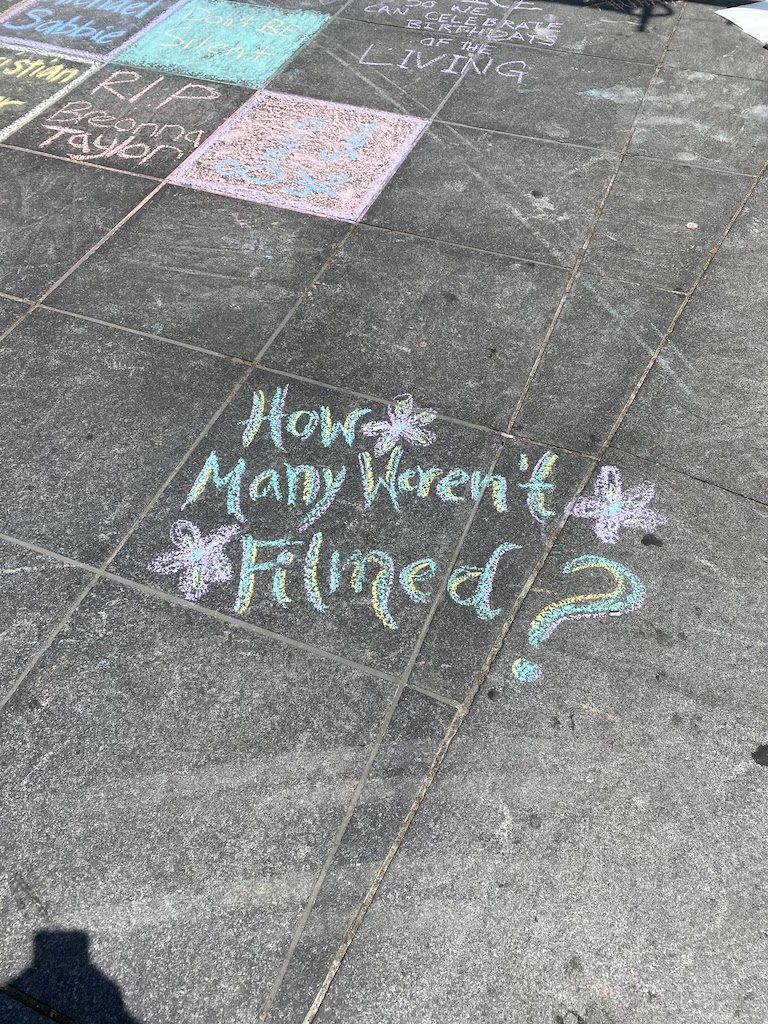 Michael
Sabbie
Don't BE
Silent
SO WE
CAN CELEBRATE
BIRTHDAYS
OF THE
LIVING
R.I.P
Breonna
Taylor
How
Many Weren't
Filmed?